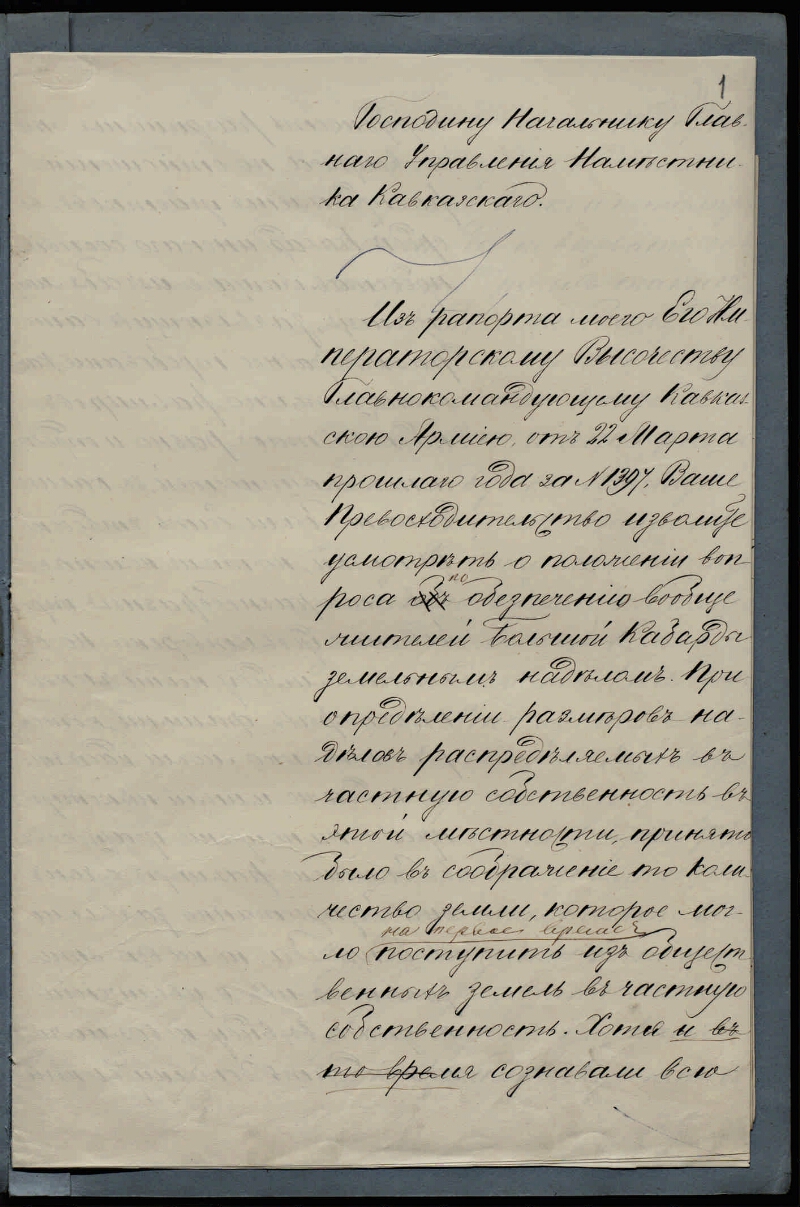 1
Господину Начальнику Глав-
наго Управленія Намѣстни-
ка Кавказскаго.
Изъ рапорта моего Его Им-
ператорскому Высочеству
Главнокомандующему Кавказ-
скою Арміею, отъ 22 Марта
прошлаго года за N 1397, Ваше
Превосходительство изволите
усмотрѣть о положеніи воп-
по
роса объ обезпеченію вообще
жителей Большой Кабарды
земельнымъ надѣломъ. При
опредѣленіи размѣровъ на-
дѣловъ распредѣляемыхъ въ
частную собственность въ
этой мѣстности, принято
было въ соображеніе то коли-
чество земли, которое мог-
на первое время
ло поступить изъ общест-
венныхъ земель въ частную
собственность. Хотя и въ
то время сознавали всю